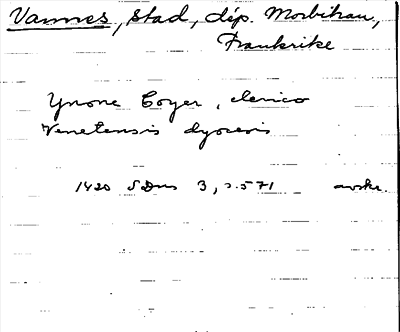 Vannes, stad, dép. Morbihan,
Frankrike
Yvone Coyer, clerico
Venetensis dyocesis
1420 SDns 3, s. 571 avskr.